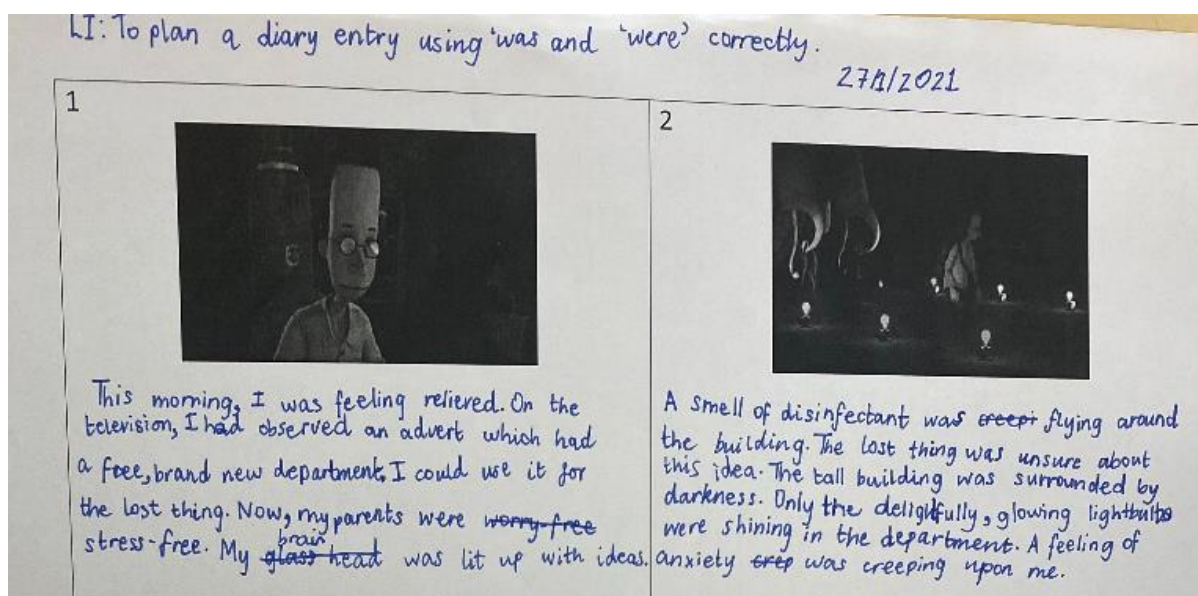 LI: To plan a diary entry using 'was and 'were' correctly.
27/1/2021
1
This morning, I was feeling relieved. On the
television, I had observed an advert which had
a free, brand new department. I could use it for
the lost thing. Now, my parents were worry-free
stress-free. My glass head brain was lit up with ideas.
2
A smell of disinfectant was creepi flying around
the building. The lost thing was unsure about
this idea. The tall building was surrounded by
darkness. Only the delightfully, glowing lightbulbs
were shining in the department. A feeling of
anxiety crep was creeping upon me.